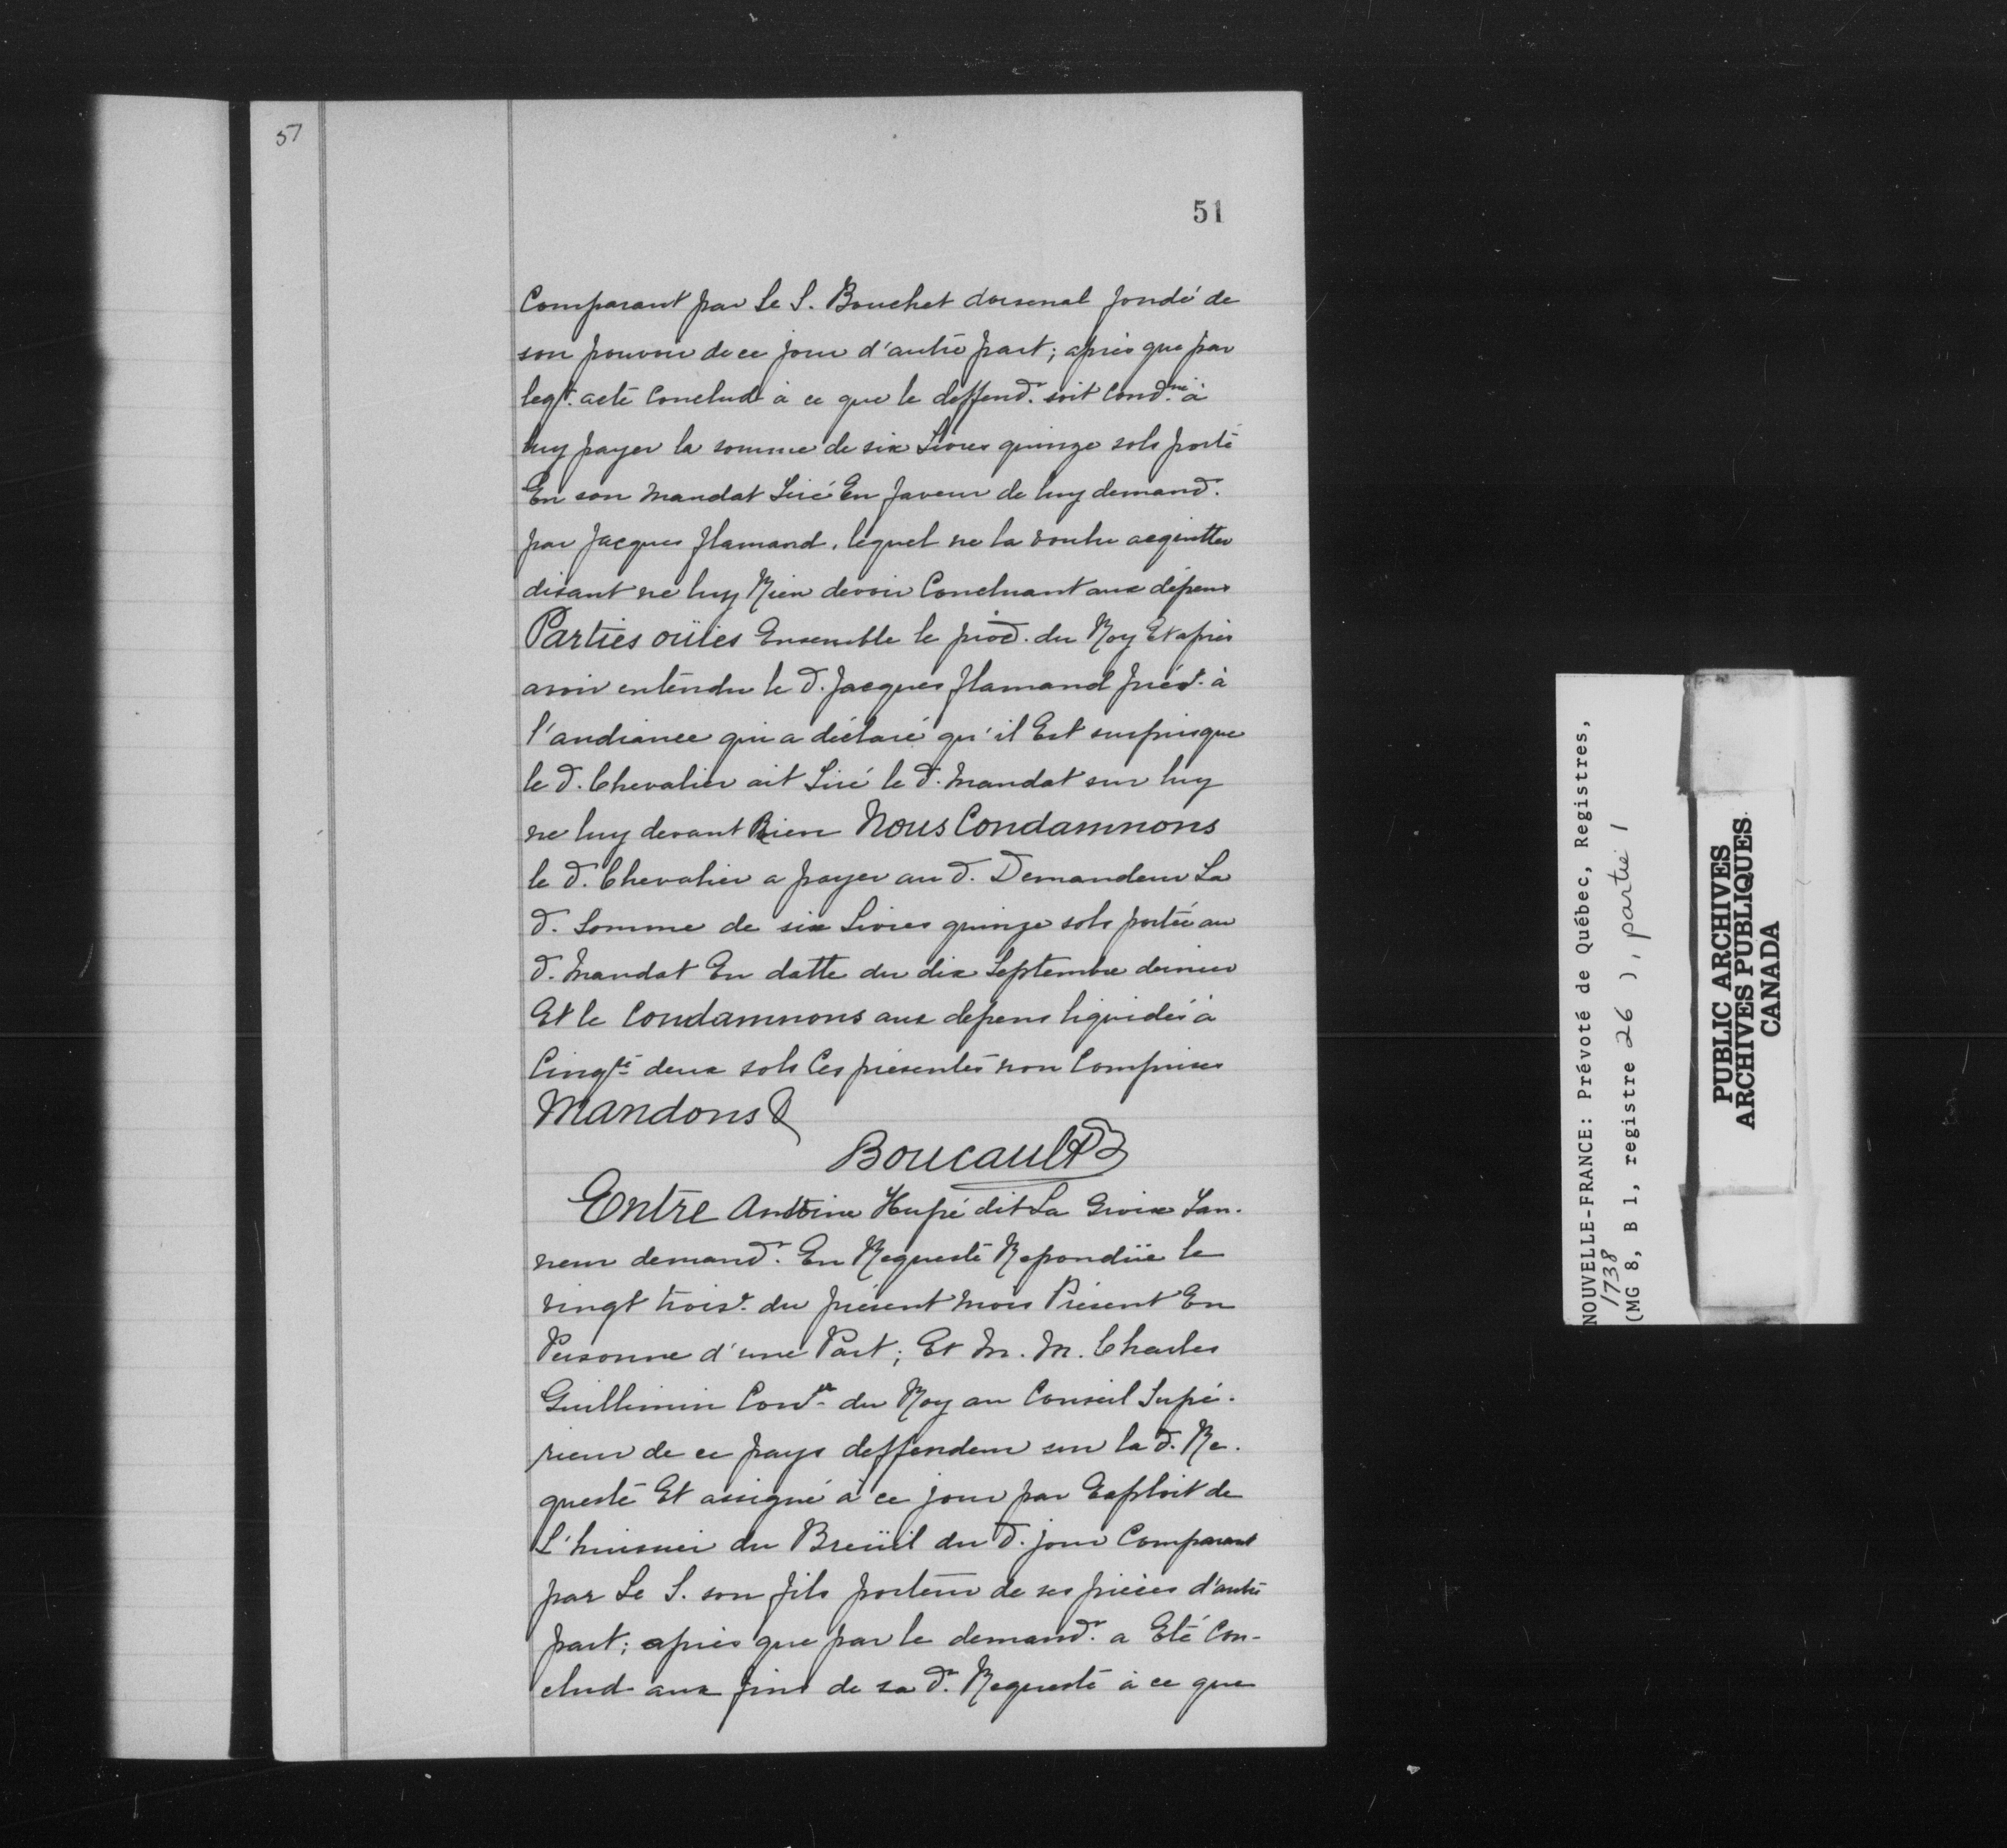 57
51
Comparant par Le S. Bouchet dorsenal fondé de
son pouvoir de ce jour d'autre part; après que par
leqt. acte Conclud à ce que le deffendr. soit Condné. à
luy payer la somme de six Livres quinze sols porté
En son mandat Tiré En faveur de luy demandr.
par Jacques flamand, lequel ne la voulu acquitter
disant ne luy Rien devoir Concluant aux dépens
Parties oüies Ensemble le procr. du Roy Et après
avoir entendu le d. Jacques flamand prést. à
l'audiance qui a déclaré qu'il Est surpris que
le d. Chevalier ait Tiré le d. mandat sur luy
ne luy devant Rien Nous Condamnons
le d. Chevalier a payer au d. Demandeur La
d. Somme de six Livres quinze sols portée au
d. mandat En datte du dix Septembre dernier
Et le Condamnons aux depens liquidés à
Cinqte deux sols Ces présentes non Comprises
Mandons &
Boucault
Entre Antoine Hupé dit La Groix Tan-
neur demandr. En Requeste Repondüe le
vingt trois. du présent mois Présent En
Personne d'une Part; Et M. M. Charles
Guillimin Consr. du Roy au Conseil Supé-
rieur de ce pays deffendeur sur la d. Re-
queste Et assigné à ce jour par Exploit de
L'huissier du Breüil du d. jour Comparant
par Le S. son fils porteur de ses pièces d'autre
part; après que par le demandr. a Eté Con-
clud aux fins de sa d. Requeste à ce que
NOUVELLE-FRANCE: Prévoté de Québec, Registres,
1738
(MG 8, B 1, registre 26 ), partie 1
PUBLIC ARCHIVES
ARCHIVES PUBLIQUES
CANADA